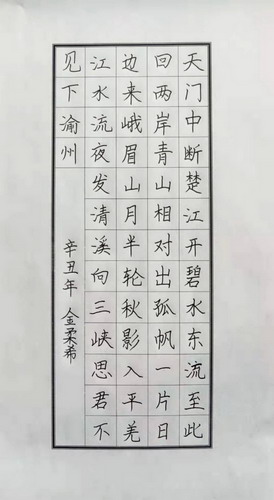 天门中断楚江开碧水东流至此
回两岸青山相对出孤帆一片日
边来峨眉山月半轮秋影入平羌
江水流夜发清溪向三峡思君不
见下渝州
辛丑年 金柔希